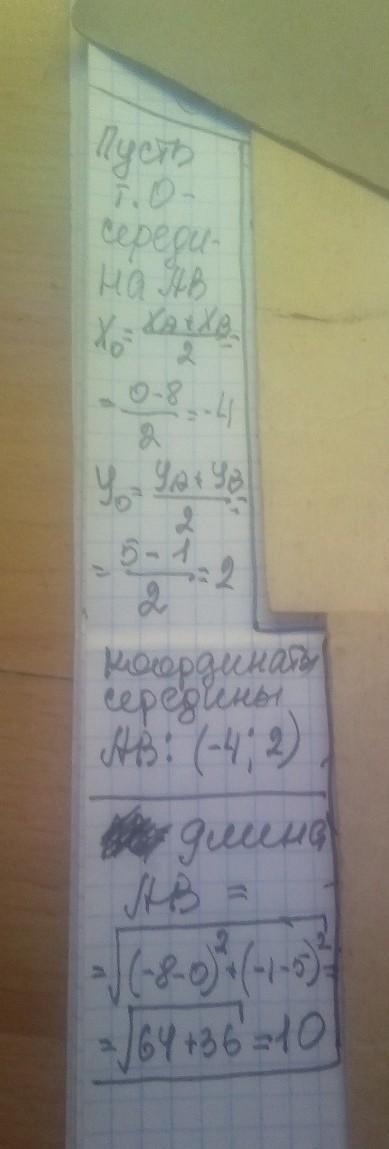 Пусть
т. О -
середи-
на АВ
X₀ = (X_A + X_B)/2 =
= (0-8)/2 = -4
y₀ = (y_A + y_B)/2 =
= (5-1)/2 = 2
координаты
середины
АВ: (-4; 2)
длина
АВ =
= √((-8-0)² + (-1-5)²) =
= √(64+36) = 10